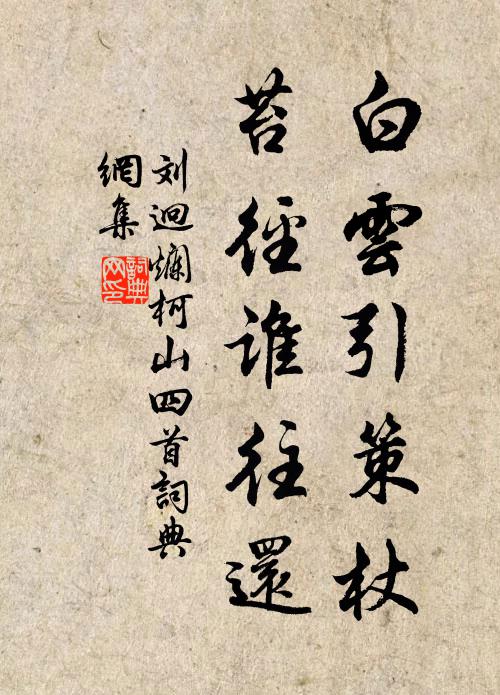 白雲引策杖
苔徑誰往還
刘迥爛柯山四首詞典
網集
詞典
网印